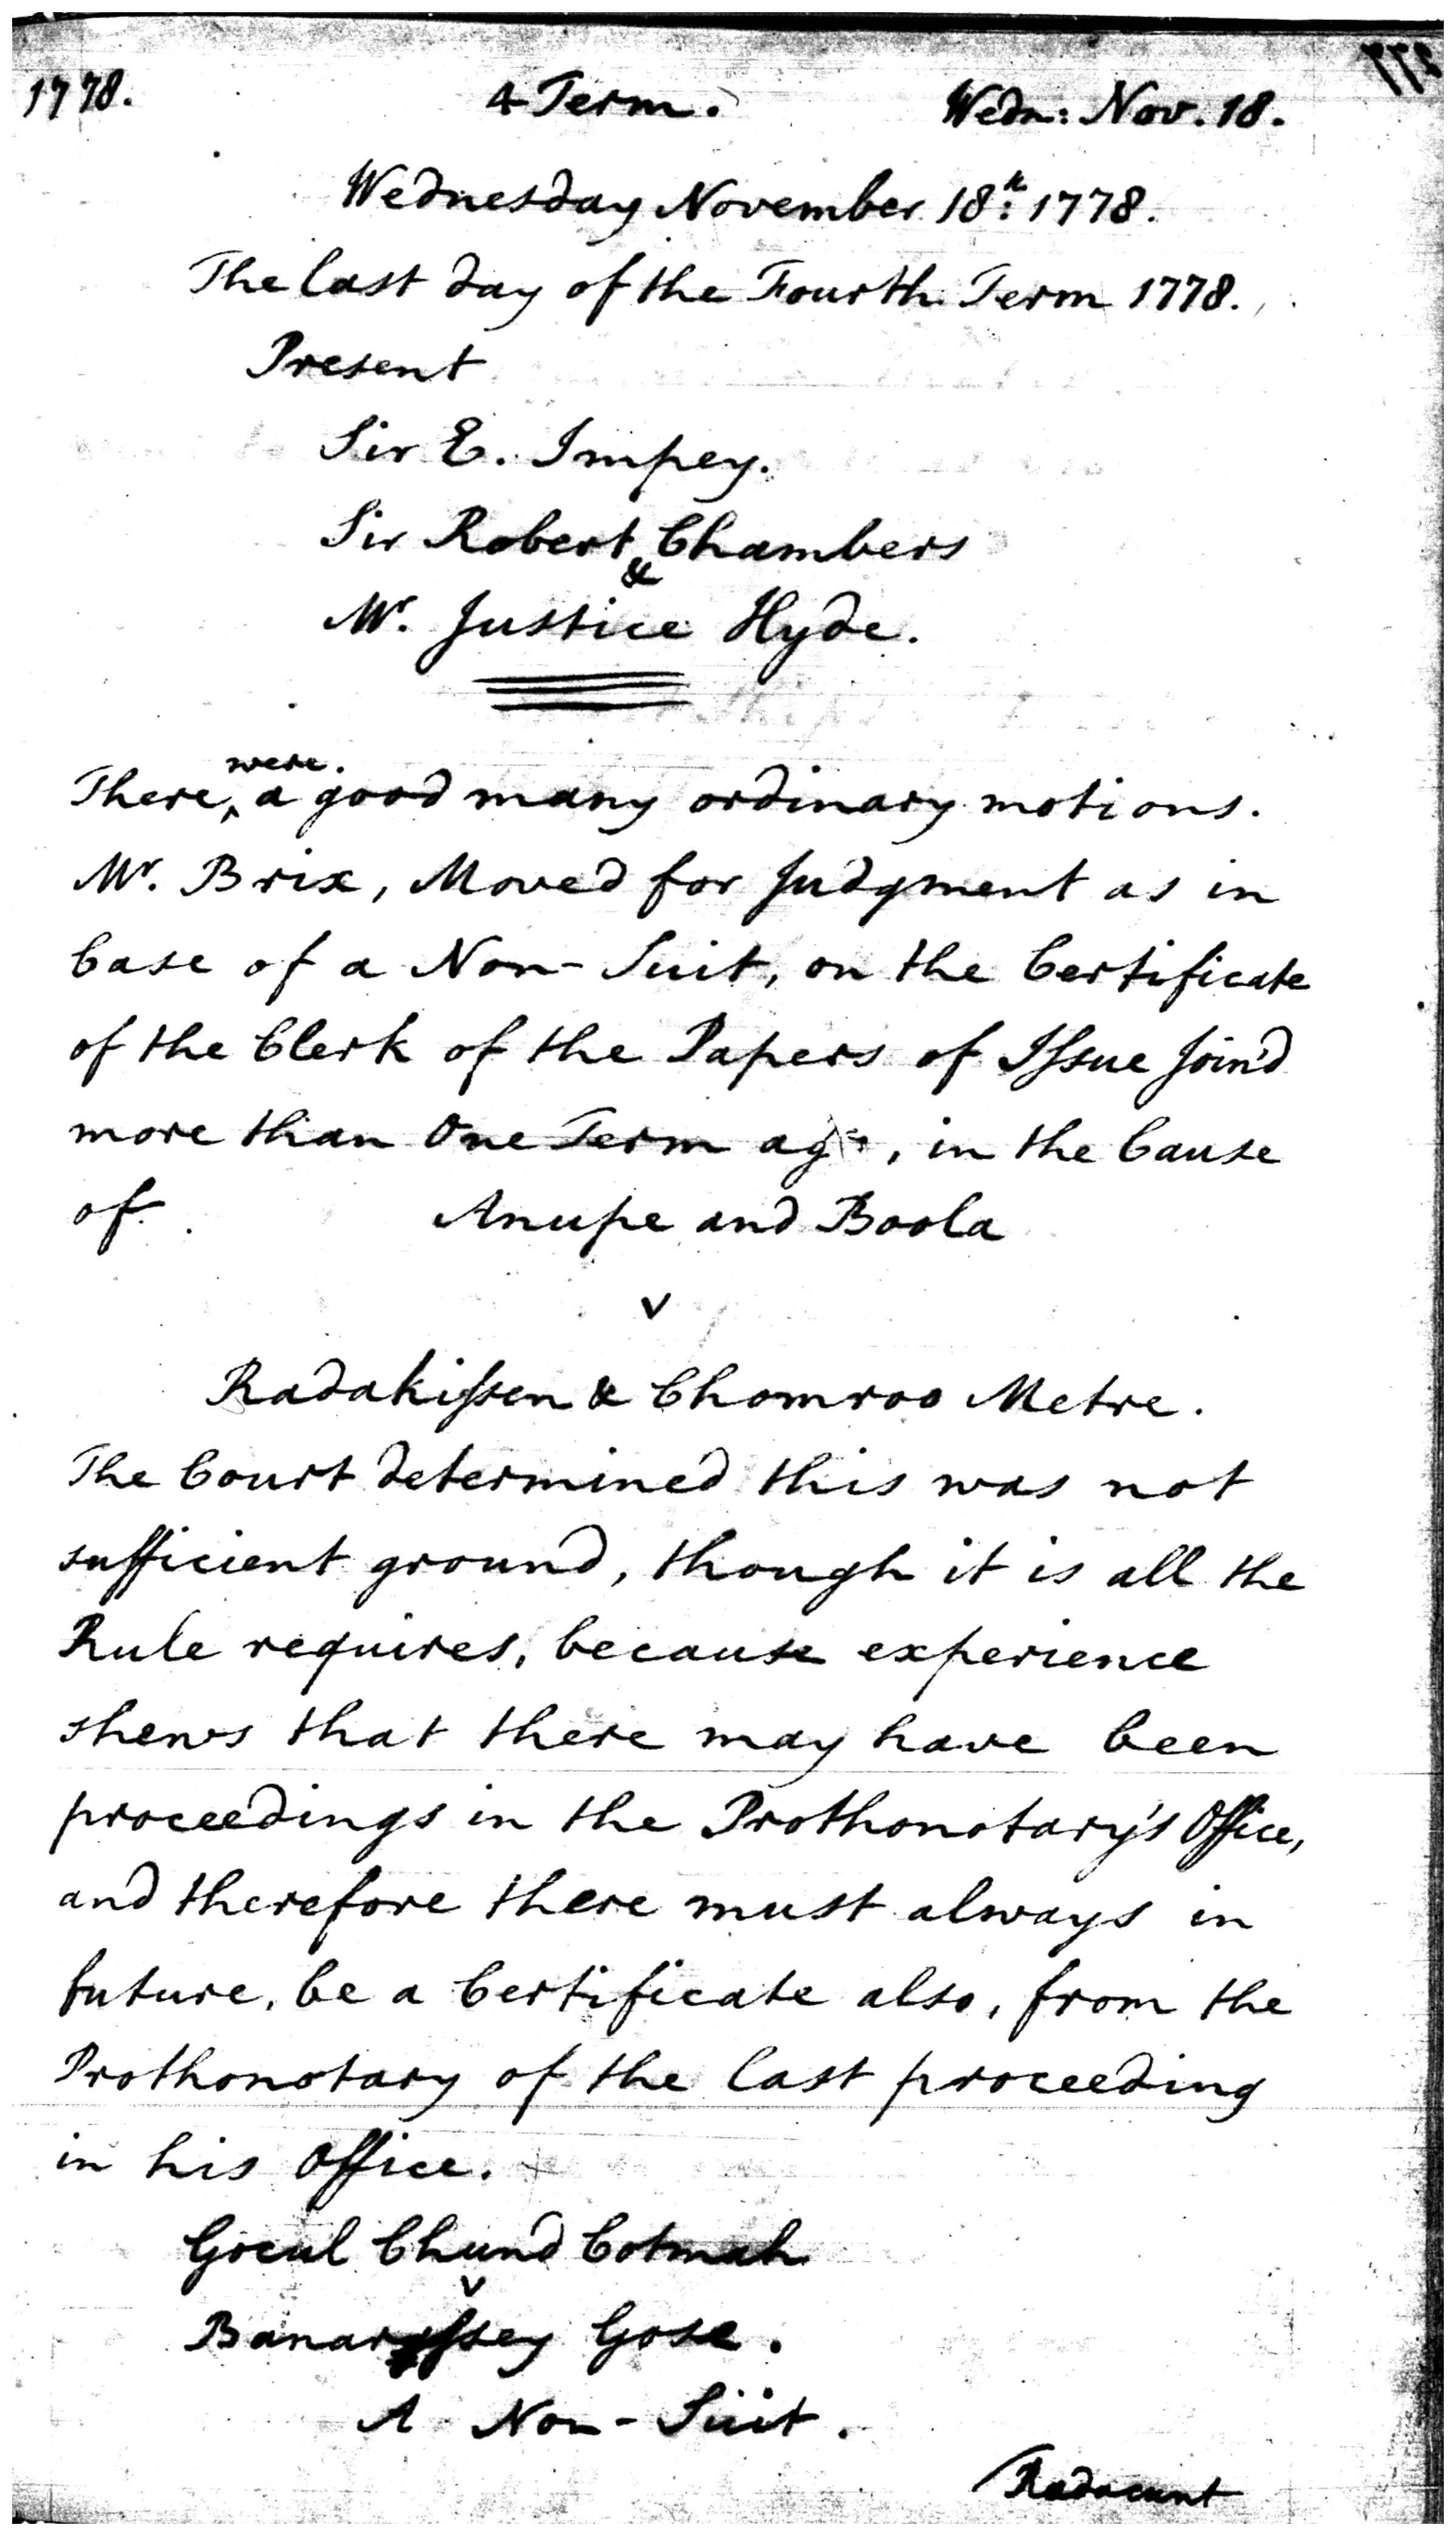 1778. 4 Term. Wedn: Nov. 18.
Wednesday November 18th: 1778.
The last day of the Fourth Term 1778.
Present
Sir E. Impey.
Sir Robert Chambers
&
Mr. Justice Hyde.
were.
There ^ a good many ordinary motions.
Mr. Brix, Moved for Judgment as in
Case of a Non-Suit, on the Certificate
of the Clerk of the Papers of Issue Join'd
more than One Term ago, in the Cause
of. Anupe and Boola
v
Radakissen & Chomroo Metre.
The Court determined this was not
sufficient ground, though it is all the
Rule requires, because experience
shews that there may have been
proceedings in the Prothonotary's Office,
and therefore there must always in
future, be a Certificate also, from the
Prothonotary of the last proceeding
in his Office.
Gocul Chund Cotmah
v
Banarssey Gose.
A Non-Suit.
Radacunt